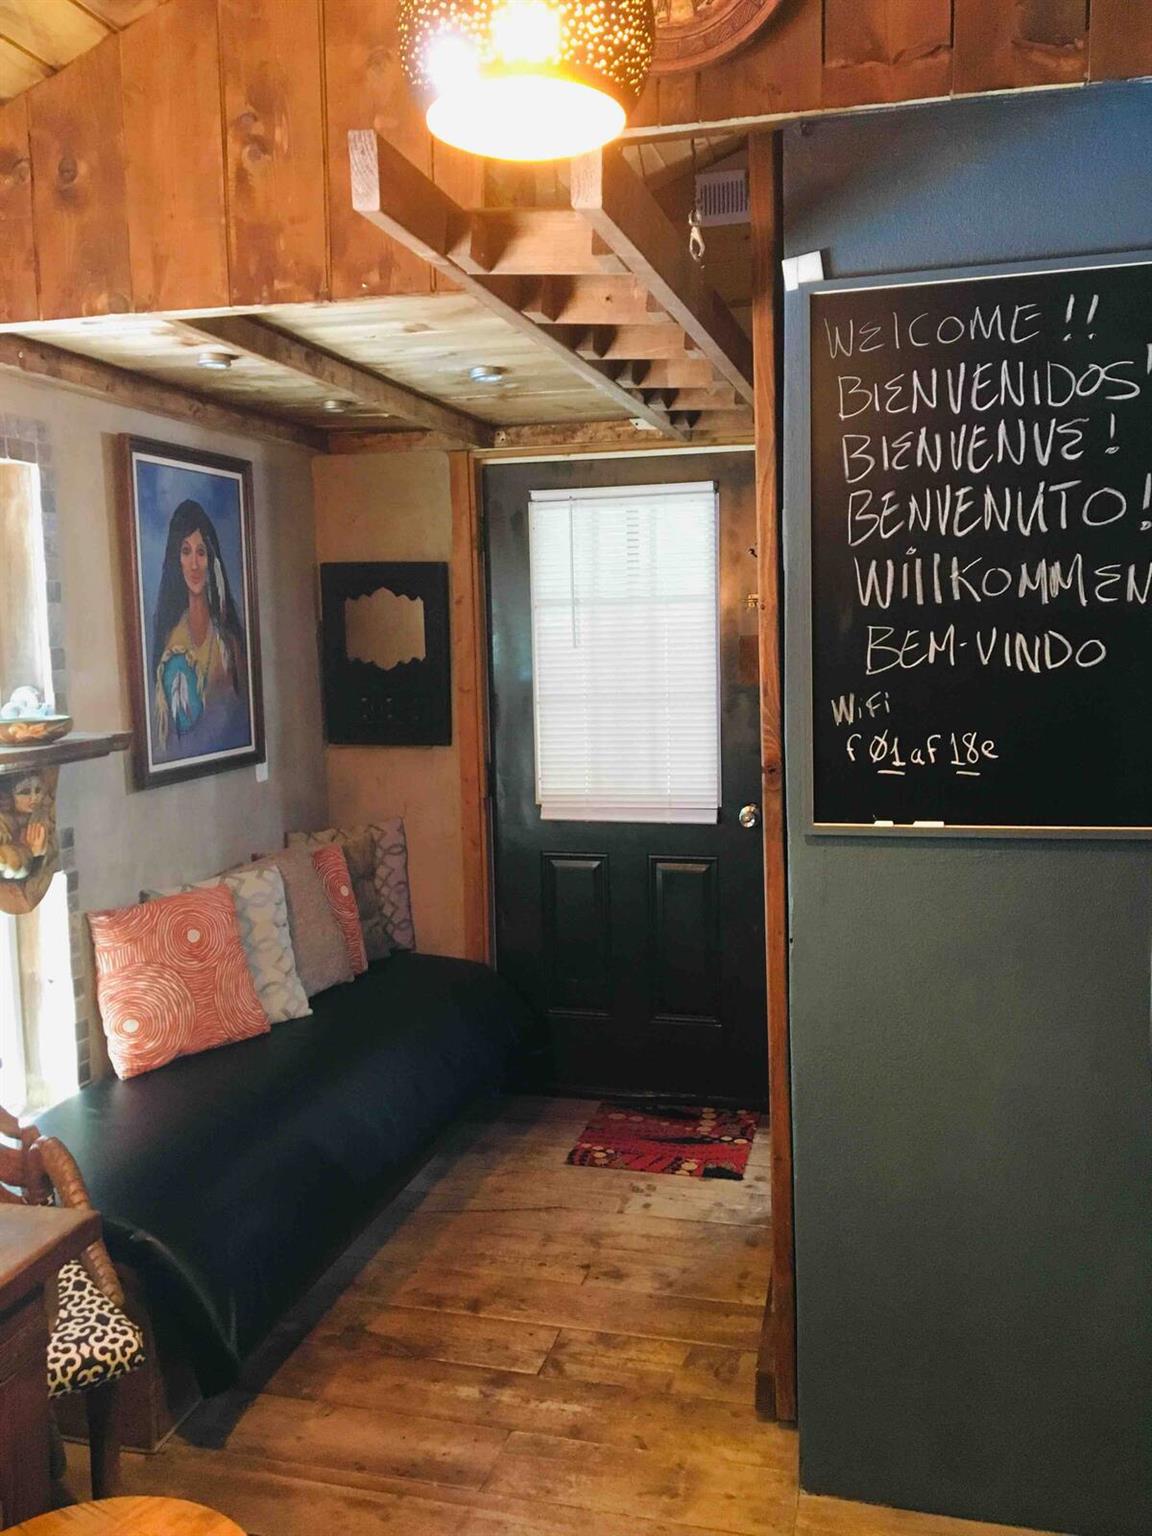 WELCOME!!
BIENVENIDOS!
BIENVENVE!
BENVENUTO!
WillKOMMEN
BEM-VINDO
WiFi
f01af18e